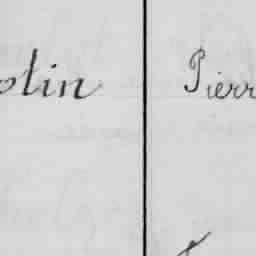 otin Pierr